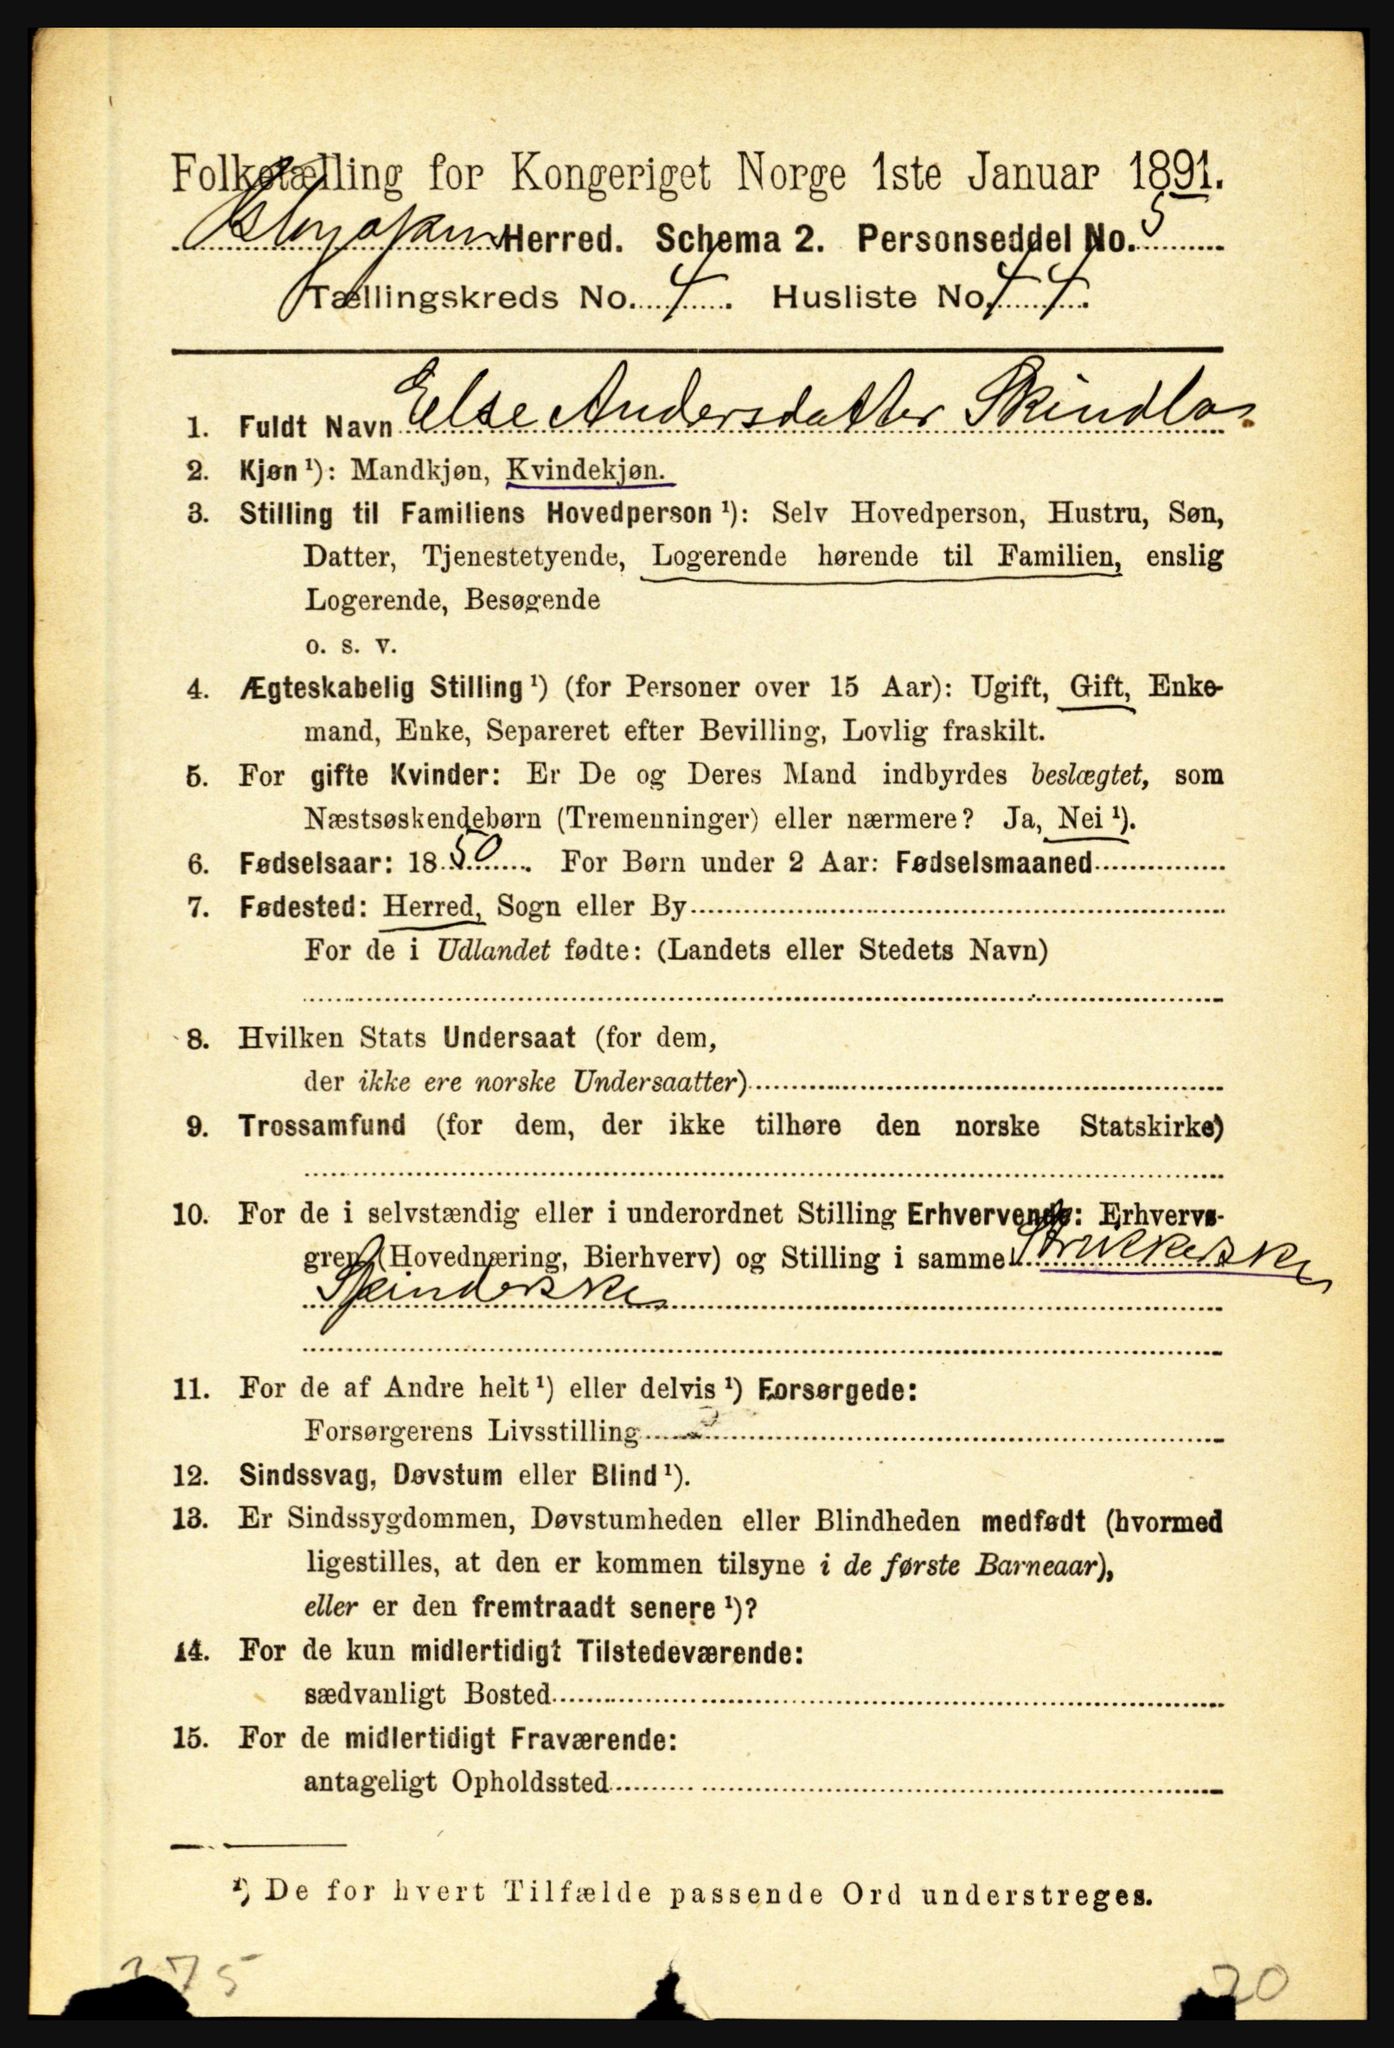 Folketælling for Kongeriget Norge 1ste Januar 1891.
Herred. Schema 2. Personseddel No. 5
Tællingskreds No. 4. Husliste No. 44.
1. Fuldt Navn Else Andersdatter Skindlo
2. Kjøn¹): Mandkjøn, Kvindekjøn.
3. Stilling til Familiens Hovedperson¹): Selv Hovedperson, Hustru, Søn,
Datter, Tjenestetyende, Logerende hørende til Familien, enslig
Logerende, Besøgende
o. s. v.
4. Ægteskabelig Stilling¹) (for Personer over 15 Aar): Ugift, Gift, Enke-
mand, Enke, Separeret efter Bevilling, Lovlig fraskilt.
5. For gifte Kvinder: Er De og Deres Mand indbyrdes beslægtet, som
Næstsøskendebørn (Tremenninger) eller nærmere? Ja, Nei¹).
6. Fødselsaar: 1850. For Børn under 2 Aar: Fødselsmaaned
7. Fødested: Herred, Sogn eller By
For de i Udlandet fødte: (Landets eller Stedets Navn)
8. Hvilken Stats Undersaat (for dem,
der ikke ere norske Undersaatter)
9. Trossamfund (for dem, der ikke tilhøre den norske Statskirke)
10. For de i selvstændig eller i underordnet Stilling Erhvervende: Erhvervs-
gren (Hovednæring, Bierhverv) og Stilling i samme Strikkerske
Spinderske
11. For de af Andre helt¹) eller delvis¹) Forsørgede:
Forsørgerens Livsstilling
12. Sindssvag, Døvstum eller Blind¹).
13. Er Sindssygdommen, Døvstumheden eller Blindheden medfødt (hvormed
ligestilles, at den er kommen tilsyne i de første Barneaar),
eller er den fremtraadt senere¹)?
14. For de kun midlertidigt Tilstedeværende:
sædvanligt Bosted
15. For de midlertidigt Fraværende:
antageligt Opholdssted
¹) De for hvert Tilfælde passende Ord understreges.
20